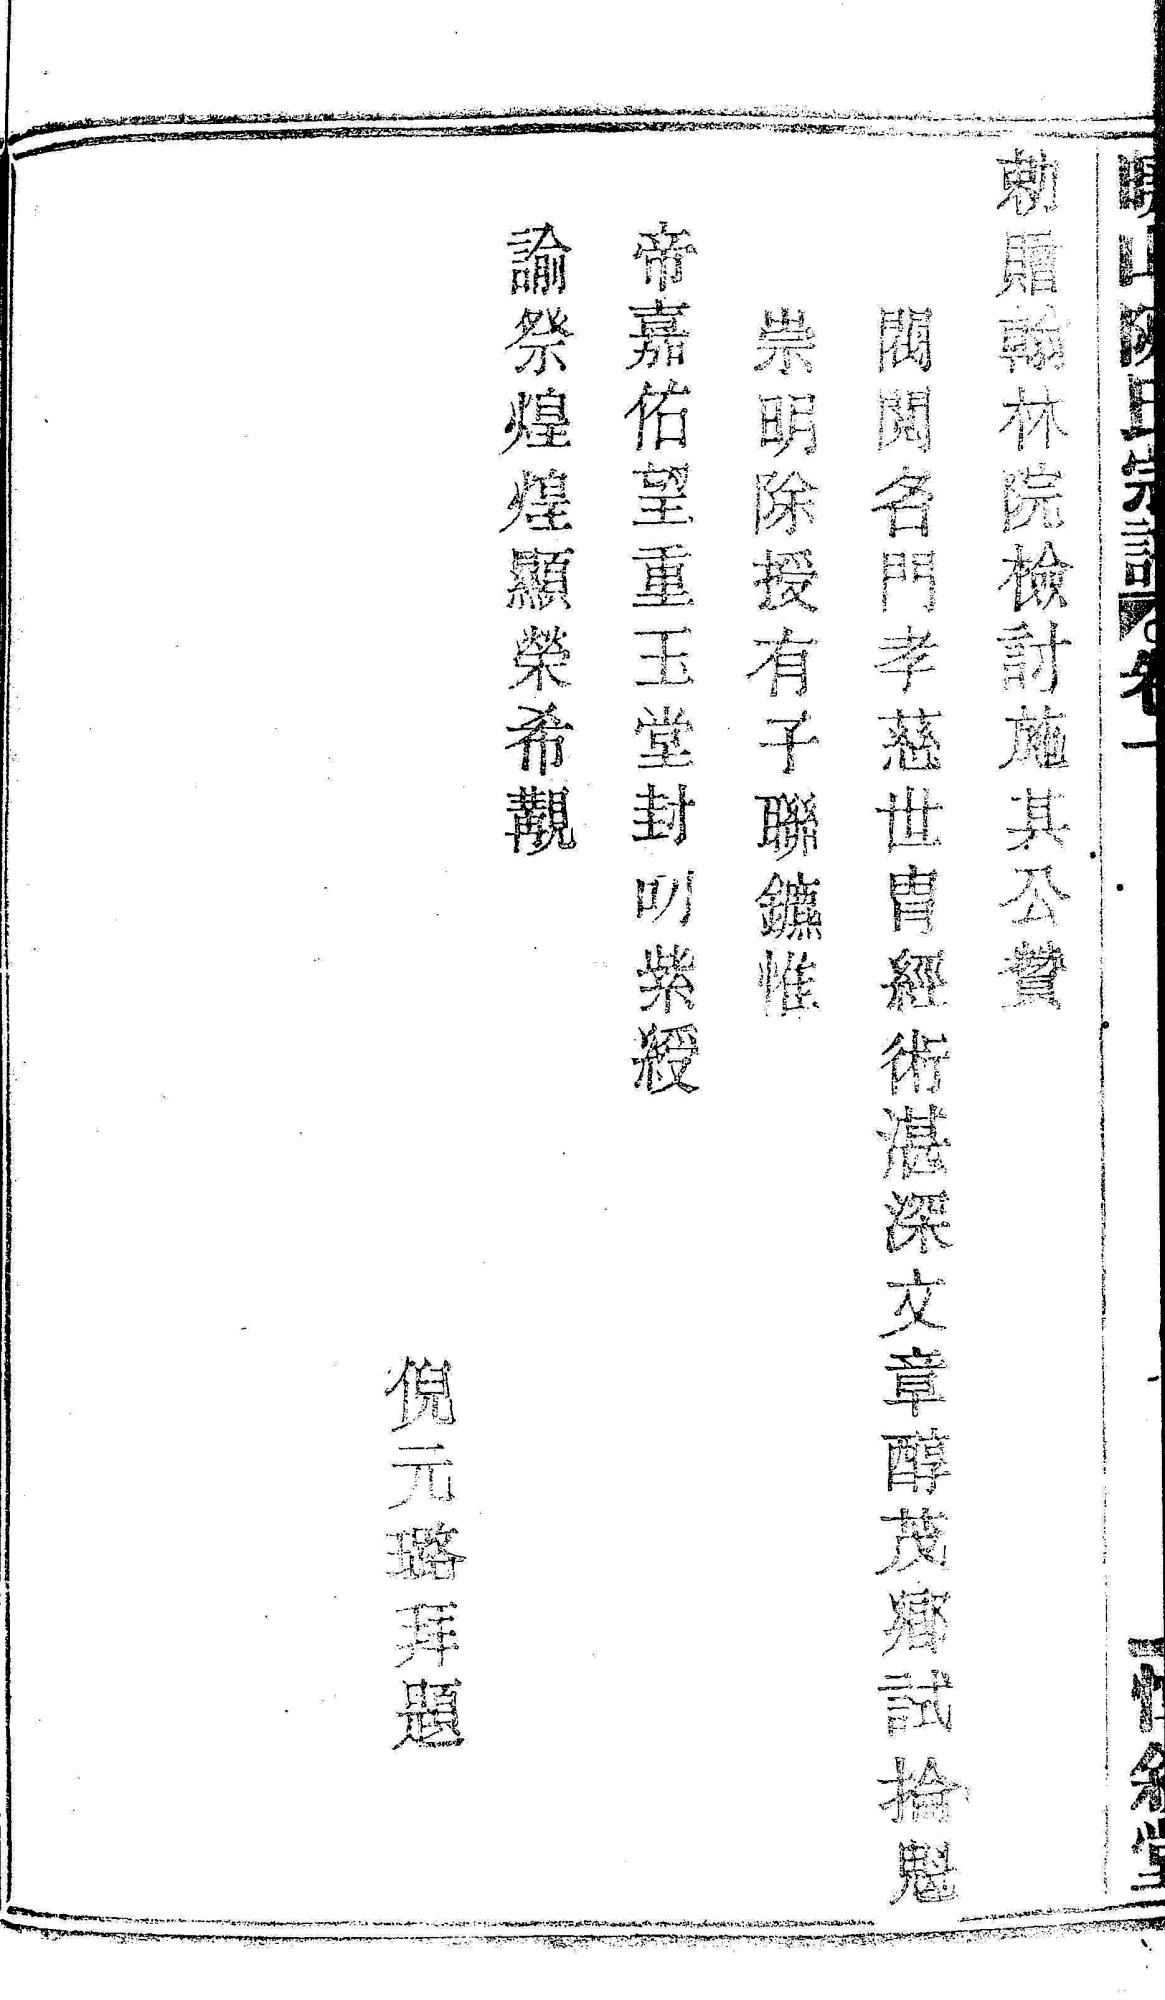 山陳氏宗譜 卷一
敕贈翰林院檢討施其公贊
閥閱名門孝慈世胄經術湛深文章醇茂鄉試掄魁
崇明除授有子聯鑣惟
帝嘉佑望重玉堂封叨紫綬
諭祭煌煌顯榮希覯
倪元璐拜題
堂